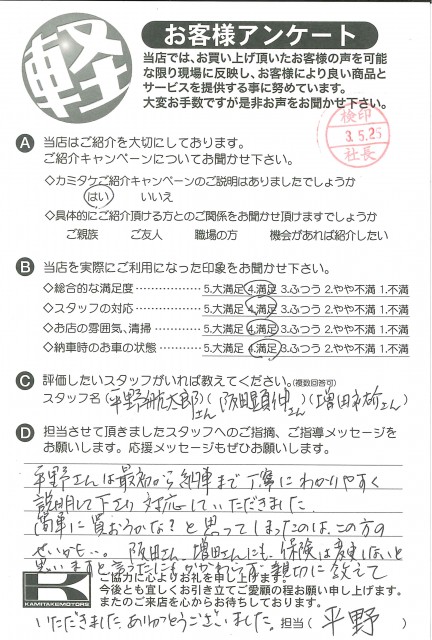 軽
お客様アンケート
当店では、お買い上げ頂いたお客様の声を可能
な限り現場に反映し、お客様により良い商品と
サービスを提供する事に努めています。
大変お手数ですが是非お声をお聞かせ下さい。
検印
3.5.25
社長
A 当店はご紹介を大切にしております。
ご紹介キャンペーンについてお聞かせ下さい。
◇カミタケご紹介キャンペーンのご説明はありましたでしょうか
はい いいえ
◇具体的にご紹介頂ける方とのご関係をお聞かせ頂けますでしょうか
ご親族 ご友人 職場の方 機会があれば紹介したい
B 当店を実際にご利用になった印象をお聞かせ下さい。
◇総合的な満足度 5.大満足 4.満足 3.ふつう 2.やや不満 1.不満
◇スタッフの対応 5.大満足 4.満足 3.ふつう 2.やや不満 1.不満
◇お店の雰囲気、清掃 5.大満足 4.満足 3.ふつう 2.やや不満 1.不満
◇納車時のお車の状態 5.大満足 4.満足 3.ふつう 2.やや不満 1.不満
C 評価したいスタッフがいれば教えてください。(複数回答可)
スタッフ名 (平野航太郎さん) (阪田顕伸さん) (増田 さん)
D 担当させて頂きましたスタッフへのご指摘、ご指導メッセージを
お願いします。応援メッセージもぜひお願いします。
平野さんは最初から納車まで丁寧にわかりやすく
説明して下さり対応していただきました。
簡単に買おうかな?と思ってしまったのは、この方の
せいかも い。阪田さん、増田さんにも、保険は変更しないと
思いますと言うたにもかかわらず、親切に教えて
ご協力に心よりお礼を申し上げます。
今後とも宜しくお引き立てご愛顧の程お願い申し上げます。
またのご来店を心からお待ちしております。
K
KAMITAKEMOTORS
いただきました。ありがとうございました。 担当(平野)